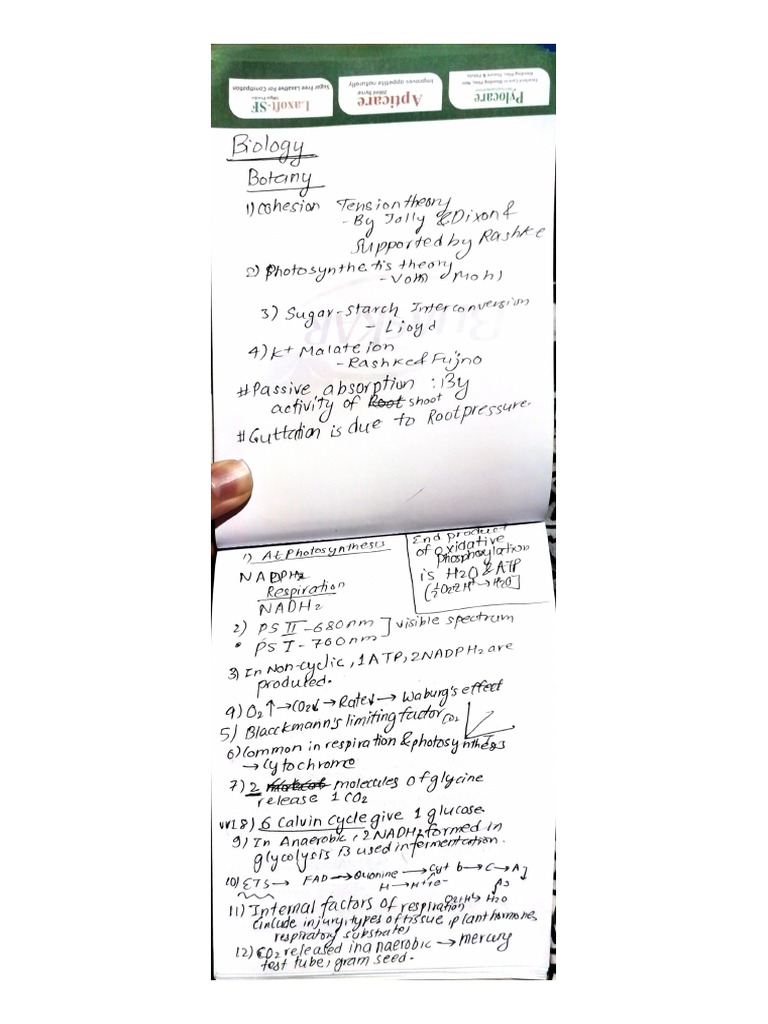 Pylocare
Excellent Care in Bleeding Piles, Non
Bleeding Piles, Fissure & Fistula
Apticare
200ml Syrup
Improves appetite naturally
Laxolt-SF
Sugar Free Laxative For Constipation
Biology
Botany
1) cohesion Tension theory
- By Jolly & Dixon &
Supported by Rashke
2) Photosynthetis theory
- Vom Mohl
3) Sugar-Starch Interconversion
- Lioyd
4) K+ Malate ion
- Rashke & Fujno
# Passive absorption : By
activity of Root shoot
# Guttation is due to Root pressure.
1) At Photosynthesis
NADPH2
Respiration
NADH2
End product
of oxidative
phosphorylation
is H2O & ATP
(½O2 2H+ → H2O]
2) PS II - 680nm ] visible spectrum
• PS I - 700nm
3) In Non-cyclic, 1 ATP, 2NADPH2 are
produced.
4) O2↑ → CO2↓ → Rate↓ → Waburg's effect
5) Blacckmann's limiting factor CO2
6) Common in respiration & photosynthesis
→ Cytochrome
7) 2 molecules of glycine
release 1 CO2
VVI 8) 6 Calvin Cycle give 1 glucose.
9) In Anaerobic, 2 NADH2 formed in
glycolysis is used in fermentation.
10) ETS → FAD → Quonine → Cyt b → C → A
H → H+ + e- A3
O2+H+ → H2O
11) Internal factors of respiration
(include injury, types of tissue, plant hormones
respiratory substrate)
12) CO2 released in anaerobic → mercury
test tube, gram seed.